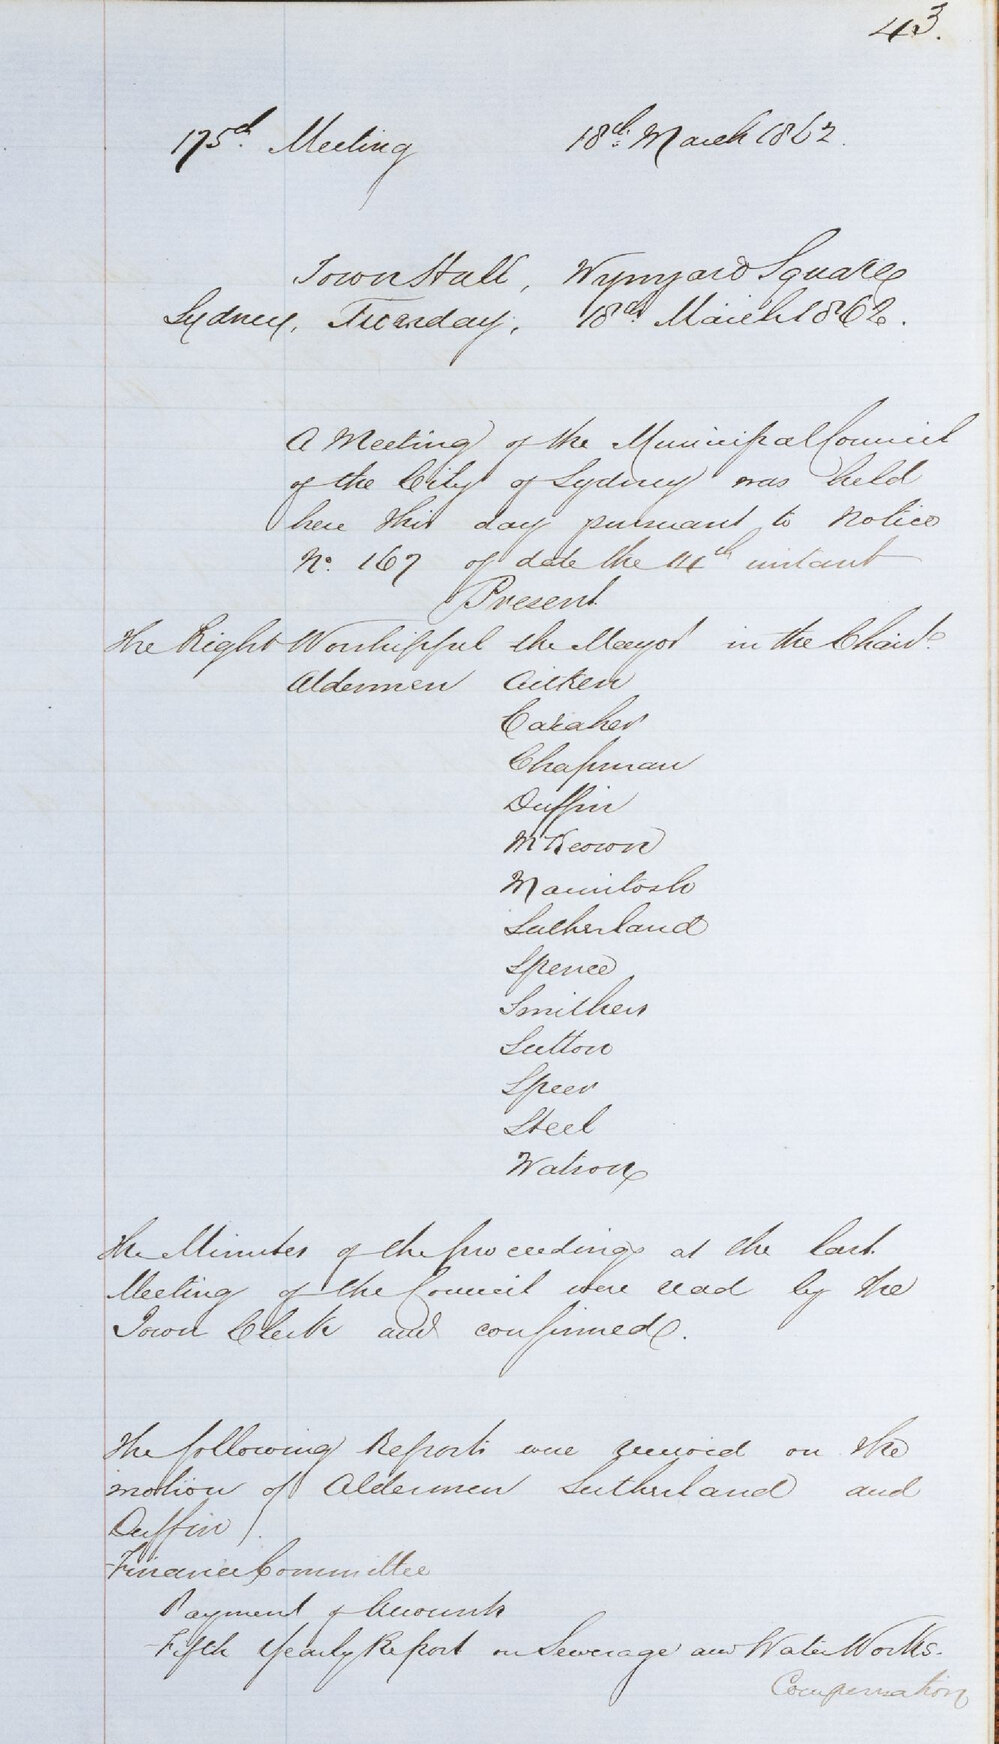 43.
175th. Meeting 18th. March 1862.
Town Hall, Wynyard Square
Sydney, Tuesday, 18th. March 1862.
A Meeting of the Municipal Council
of the City of Sydney was held
here this day pursuant to Notice
No. 167 of date the 14th instant
Present
The Right Worshipful the Mayor in the Chair.
Aldermen Aitken
Caraher
Chapman
Duffin
McKeown
Macintosh
Sutherland
Spence
Smithers
Sutton
Speer
Steel
Watson
The Minutes of the proceedings at the last
Meeting of the Council were read by the
Town Clerk and confirmed.
The following Reports were received on the
motion of Aldermen Sutherland and
Duffin /.
Finance Committee
Payment of Accounts
Fifth Yearly Report on Sewerage and Water Works.
Compensation